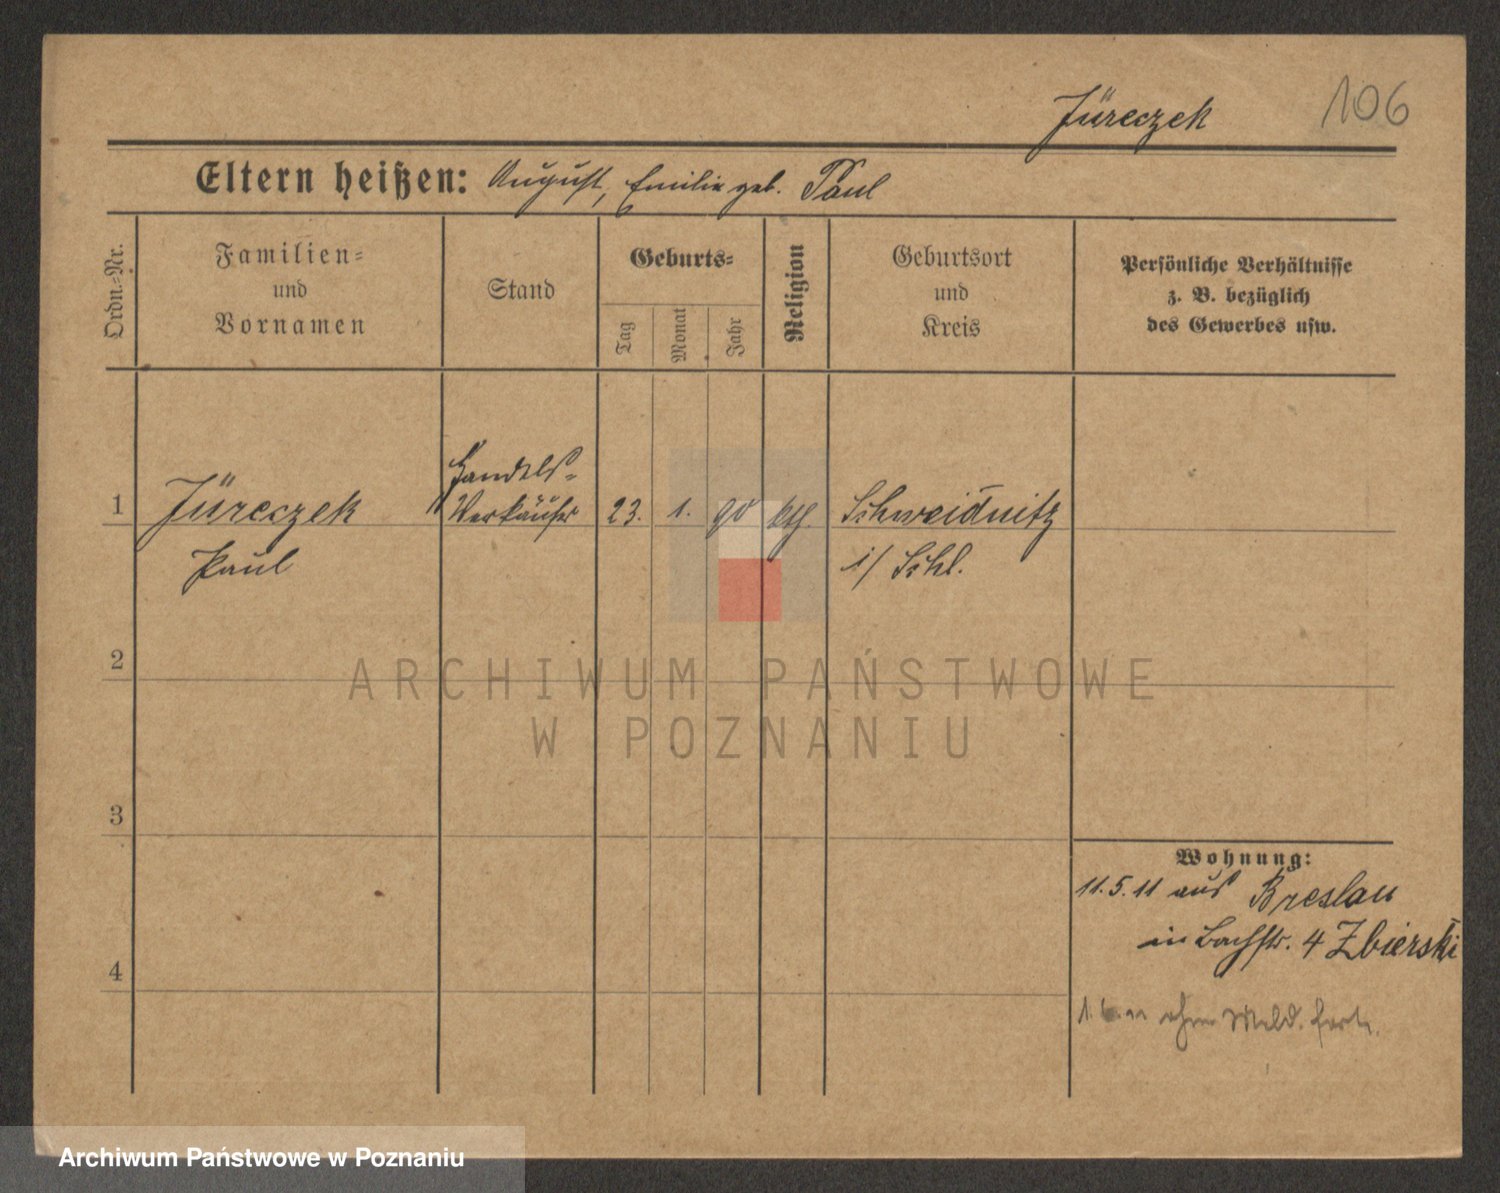 Jüreczek 106
Eltern heißen: August, Emilie geb. Paul
Ordn.=Nr.
Familien=
und
Vornamen
Stand
Geburts=
Tag
Monat
Jahr
Religion
Geburtsort
und
Kreis
Persönliche Verhältnisse
z. B. bezüglich
des Gewerbes usw.
Handels=
1 Jüreczek Verkäufer 23. 1. 90 kth. Schweidnitz
Paul i/ Schl.
2
ARCHIWUM PAŃSTWOWE
W POZNANIU
3
Wohnung:
11.5.11 aus Breslau
in Bachstr. 4 Zbierski
4
1.6.11 ohne Meld. fort.
Archiwum Państwowe w Poznaniu